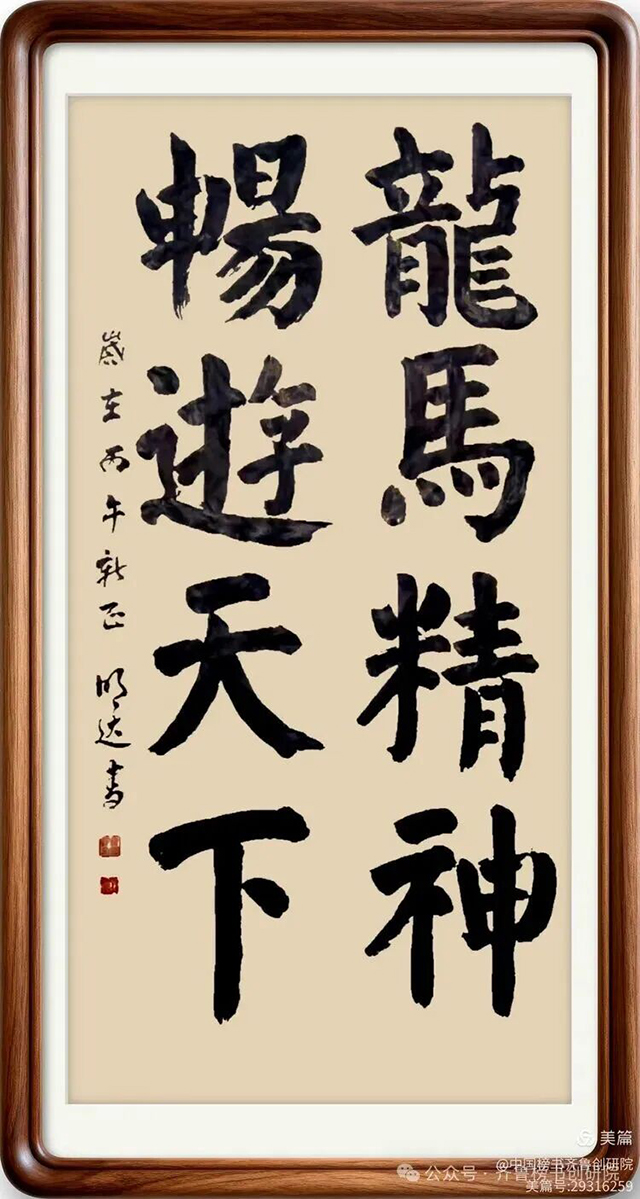 龍馬精神
暢遊天下
歲在丙午新正 明达書
美篇
@中国榜书齐鲁创研院
公众号·齐鲁榜书创研院
美篇号:29316259